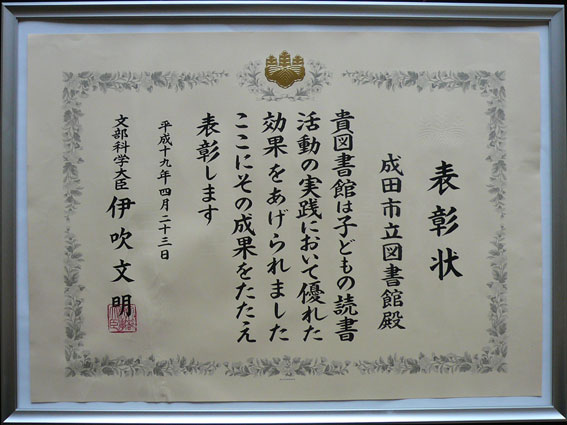 表彰状
成田市立図書館殿
貴図書館は子どもの読書
活動の実践において優れた
効果をあげられました
ここにその成果をたたえ
表彰します
平成十九年四月二十三日
文部科学大臣 伊吹文明